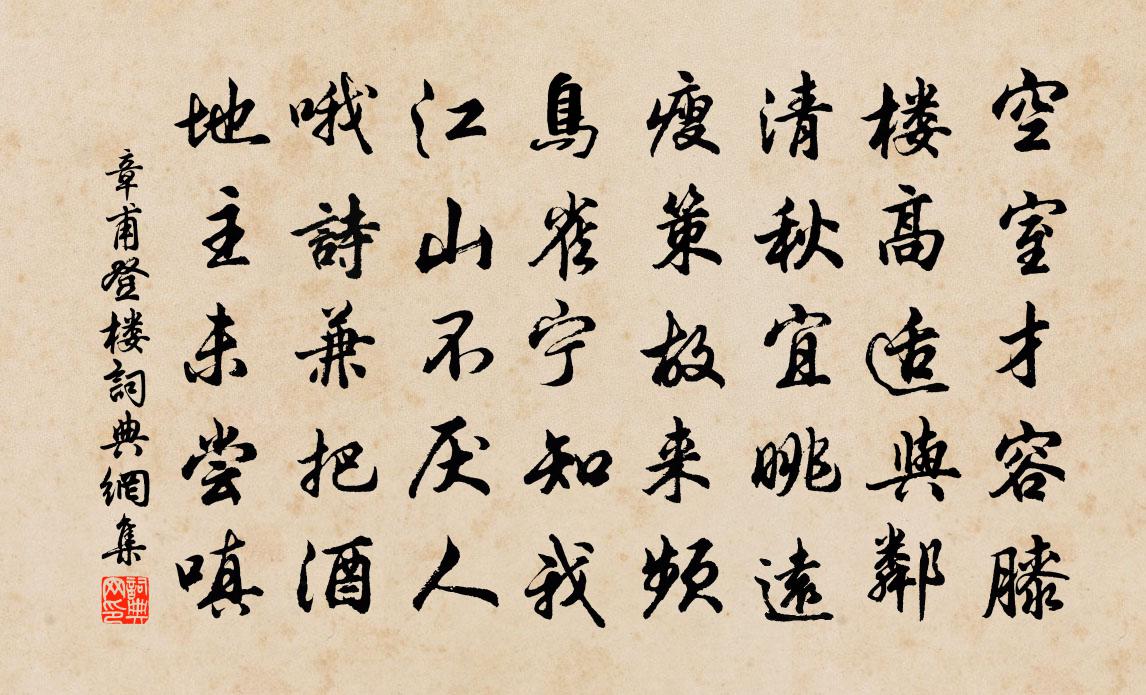 空室才容膝
楼高适與鄰
清秋宜眺遠
瘦策故来頻
鳥雀宁知我
江山不厌人
哦詩兼把酒
地主未尝嗔
章甫登楼詞典網集
詞典网印